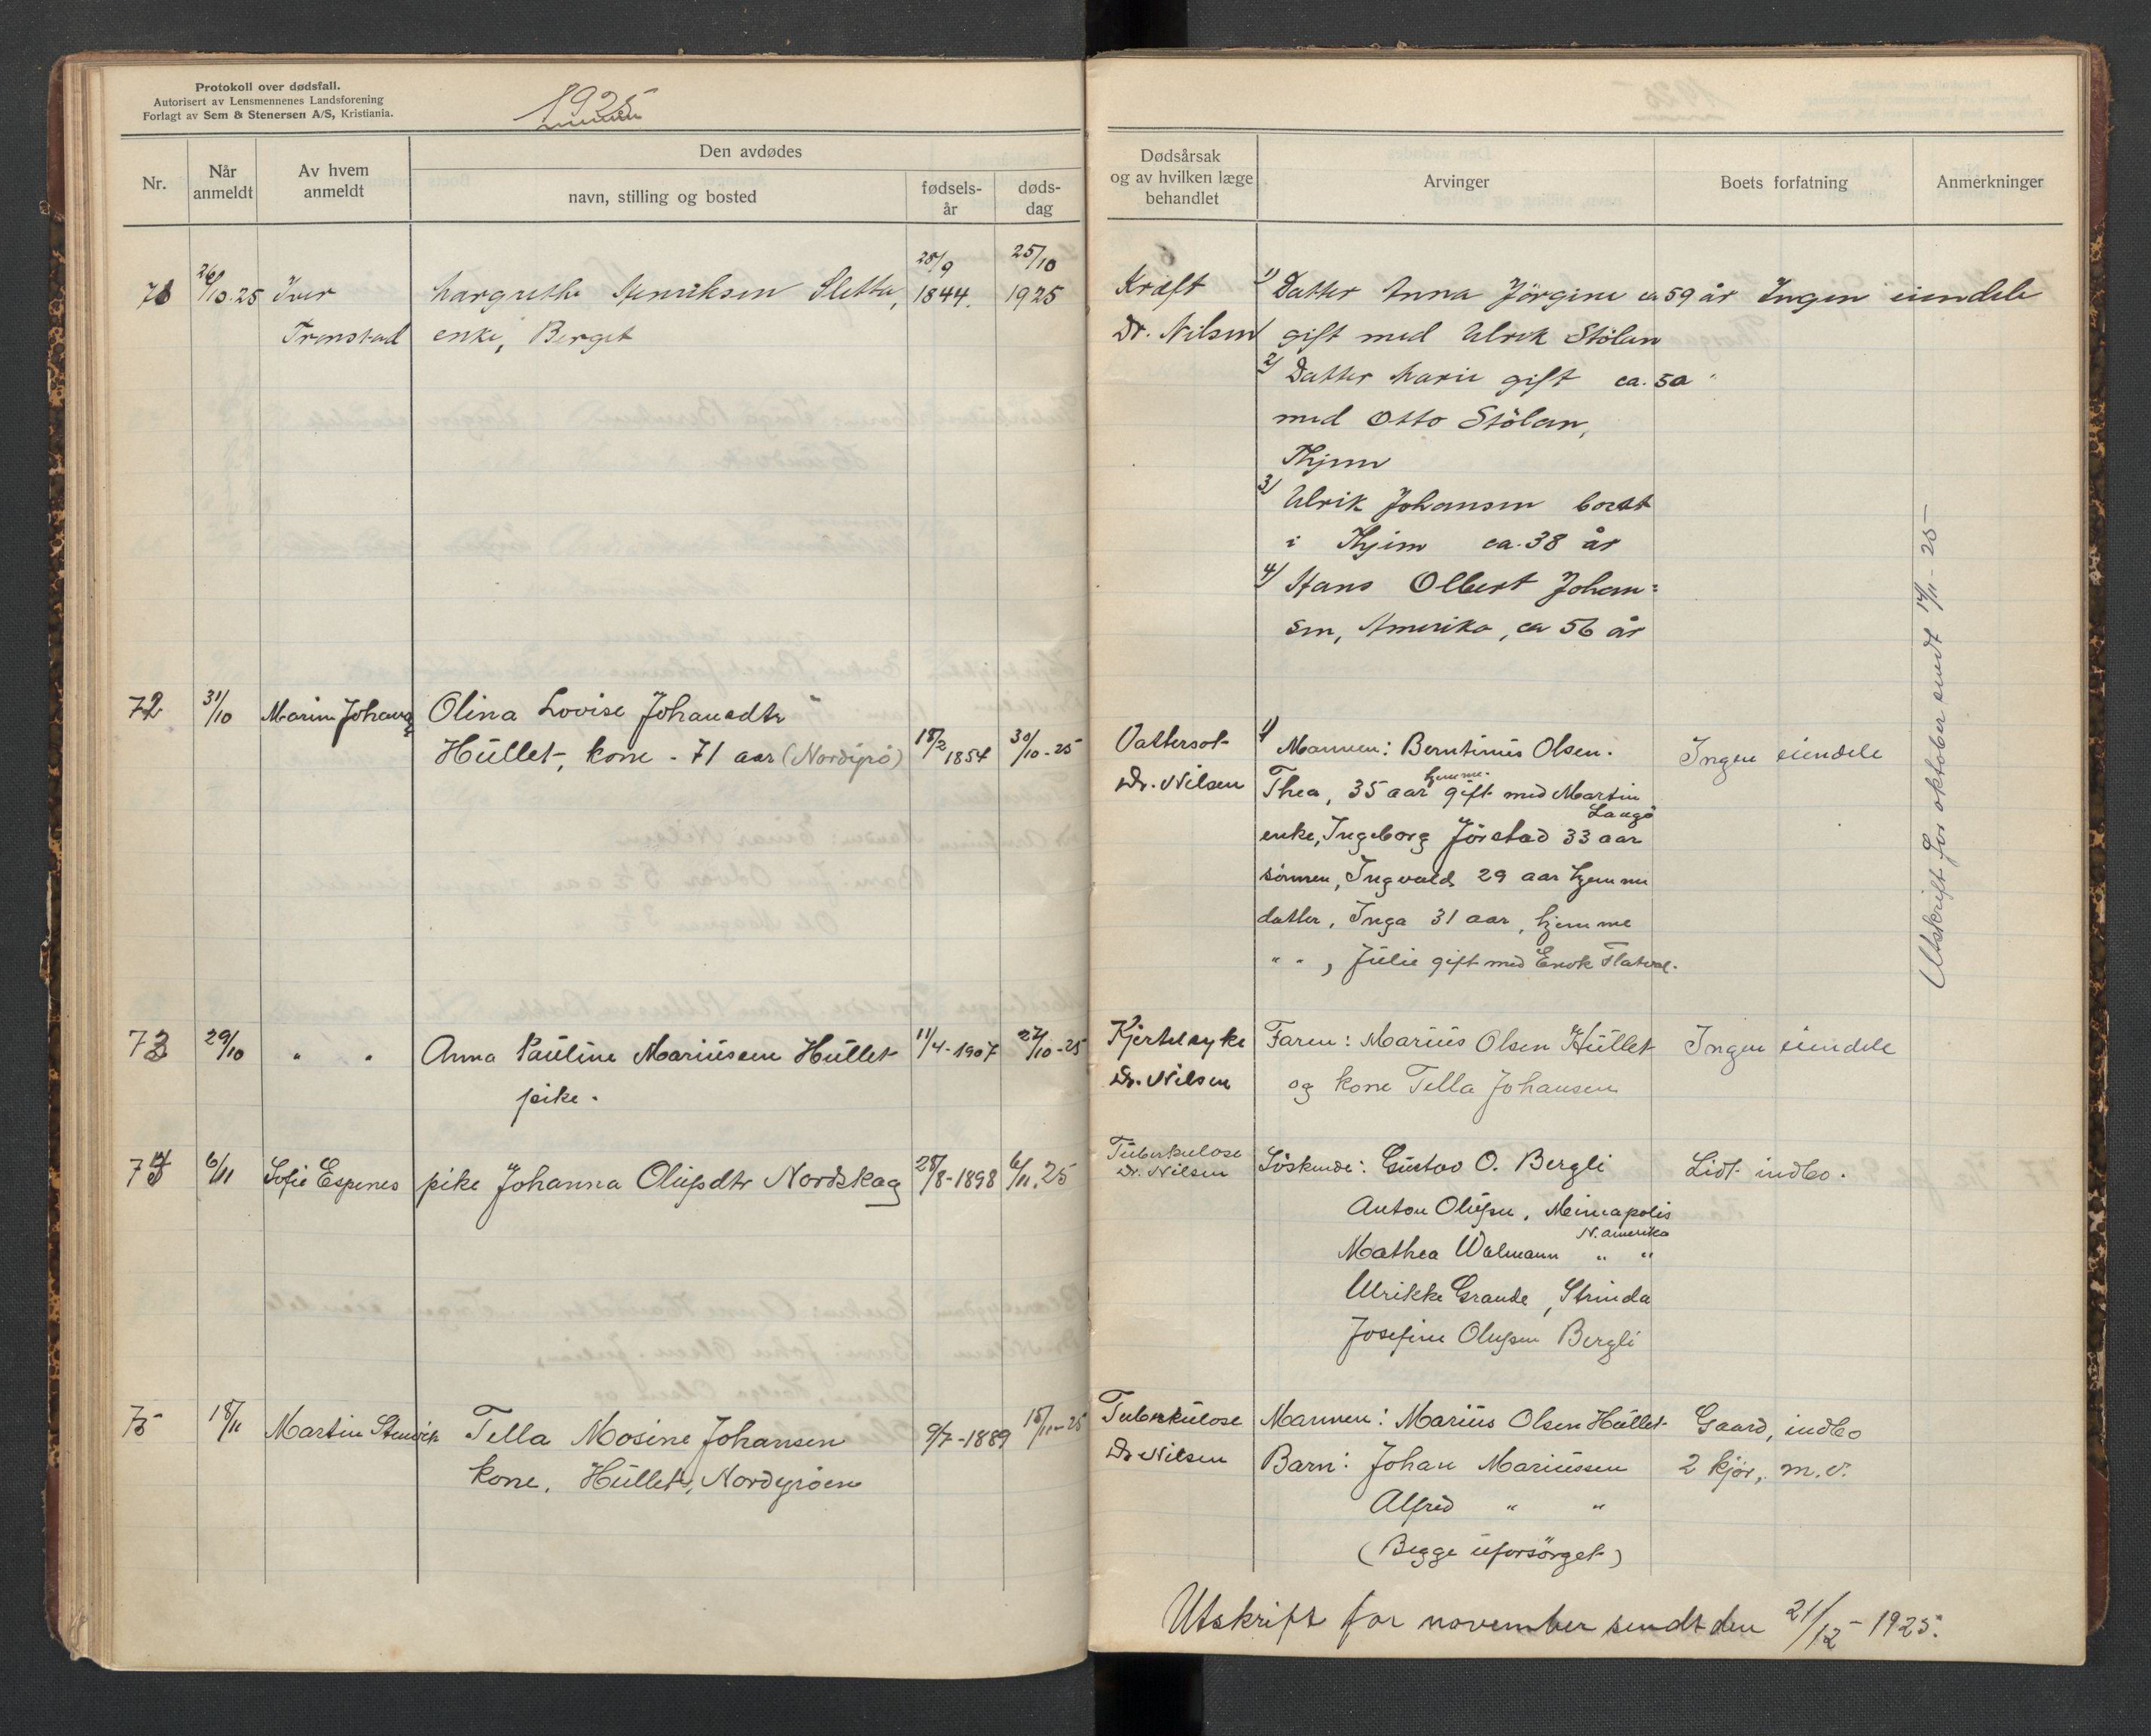 Protokoll over dødsfall.
Autorisert av Lensmennenes Landsforening
Forlagt av Sem & Stenersen A/S, Kristiania.
1925
Nr.
Når anmeldt
Av hvem anmeldt
Den avdødes
navn, stilling og bosted
fødsels-år
døds-dag
Dødsårsak
og av hvilken læge
behandlet
Arvinger
Boets forfatning
Anmerkninger
71 26/10.25 Iver Margrethe Henriksen Sletta, 28/9 1844. 25/10 1925
Tronstad enke, Berget
Kræft
Dr. Nilsen
1) Datter Anna Jörgine ca 59 år Ingen eiendele
gift med Ulrik Stölan
2) Datter Marie gift ca. 50 "
med Otto Stölan,
3) Ulrik Johansen bosat
i ca. 38 år
4) Hans Olbert Johan=
sen, Amerika, ca 56 år
72 31/10 Olina Lovise Johansdtr
Hüllet, kone - 71 aar (Nordyrö) 18/2 1854 30/10-25
Vattersot
Dr. Nilsen
1) Mannen: Berntinus Olsen. Ingen eiendele
Thea, 35 aar hjemme. gift med Martin
Langö
enke, Ingeborg Jörstad 33 aar
sönnen, Ingvald 29 aar hjemme
datter, Inga 31 aar, hjemme
" ", Jülie gift med Enok Flatval.
73 29/10 " " Anna Paüline Mariüssen Hüllet 11/4-1907 27/10-25
pike.
Kjertelsyke Faren: Mariüs Olsen Hüllet Ingen eiendele
Dr. Nilsen og kone Tella Johansen
74 6/11 Sofie Espenes pike Johanna Olüfsdtr Nordskag 28/8-1898 6/11.25
Tüberkulose
Dr. Nilsen
Söskende: Güstav O. Bergli Lidt indbo.
Anton Olüfsen, Meineapolis
N. amerika
Mathea Walmann " "
Ulrikke Grande, Strinda
Josefine Olufsen Bergli
75 18/11 Martin Stenvik Tella Mosine Johansen 9/7-1889 15/11-25
kone, Hüllet, Nordyröen
Tuberkülose Mannen: Mariüs Olsen Hüllet Gaard, indbo
Dr Nilsen Barn: Johan Mariüssen 2 kjör, m.v.
Alfred " "
(Begge üforsörget)
Utskrift for oktober sendt 17/11-25
Utskrift for november sendt den 21/12-1925.